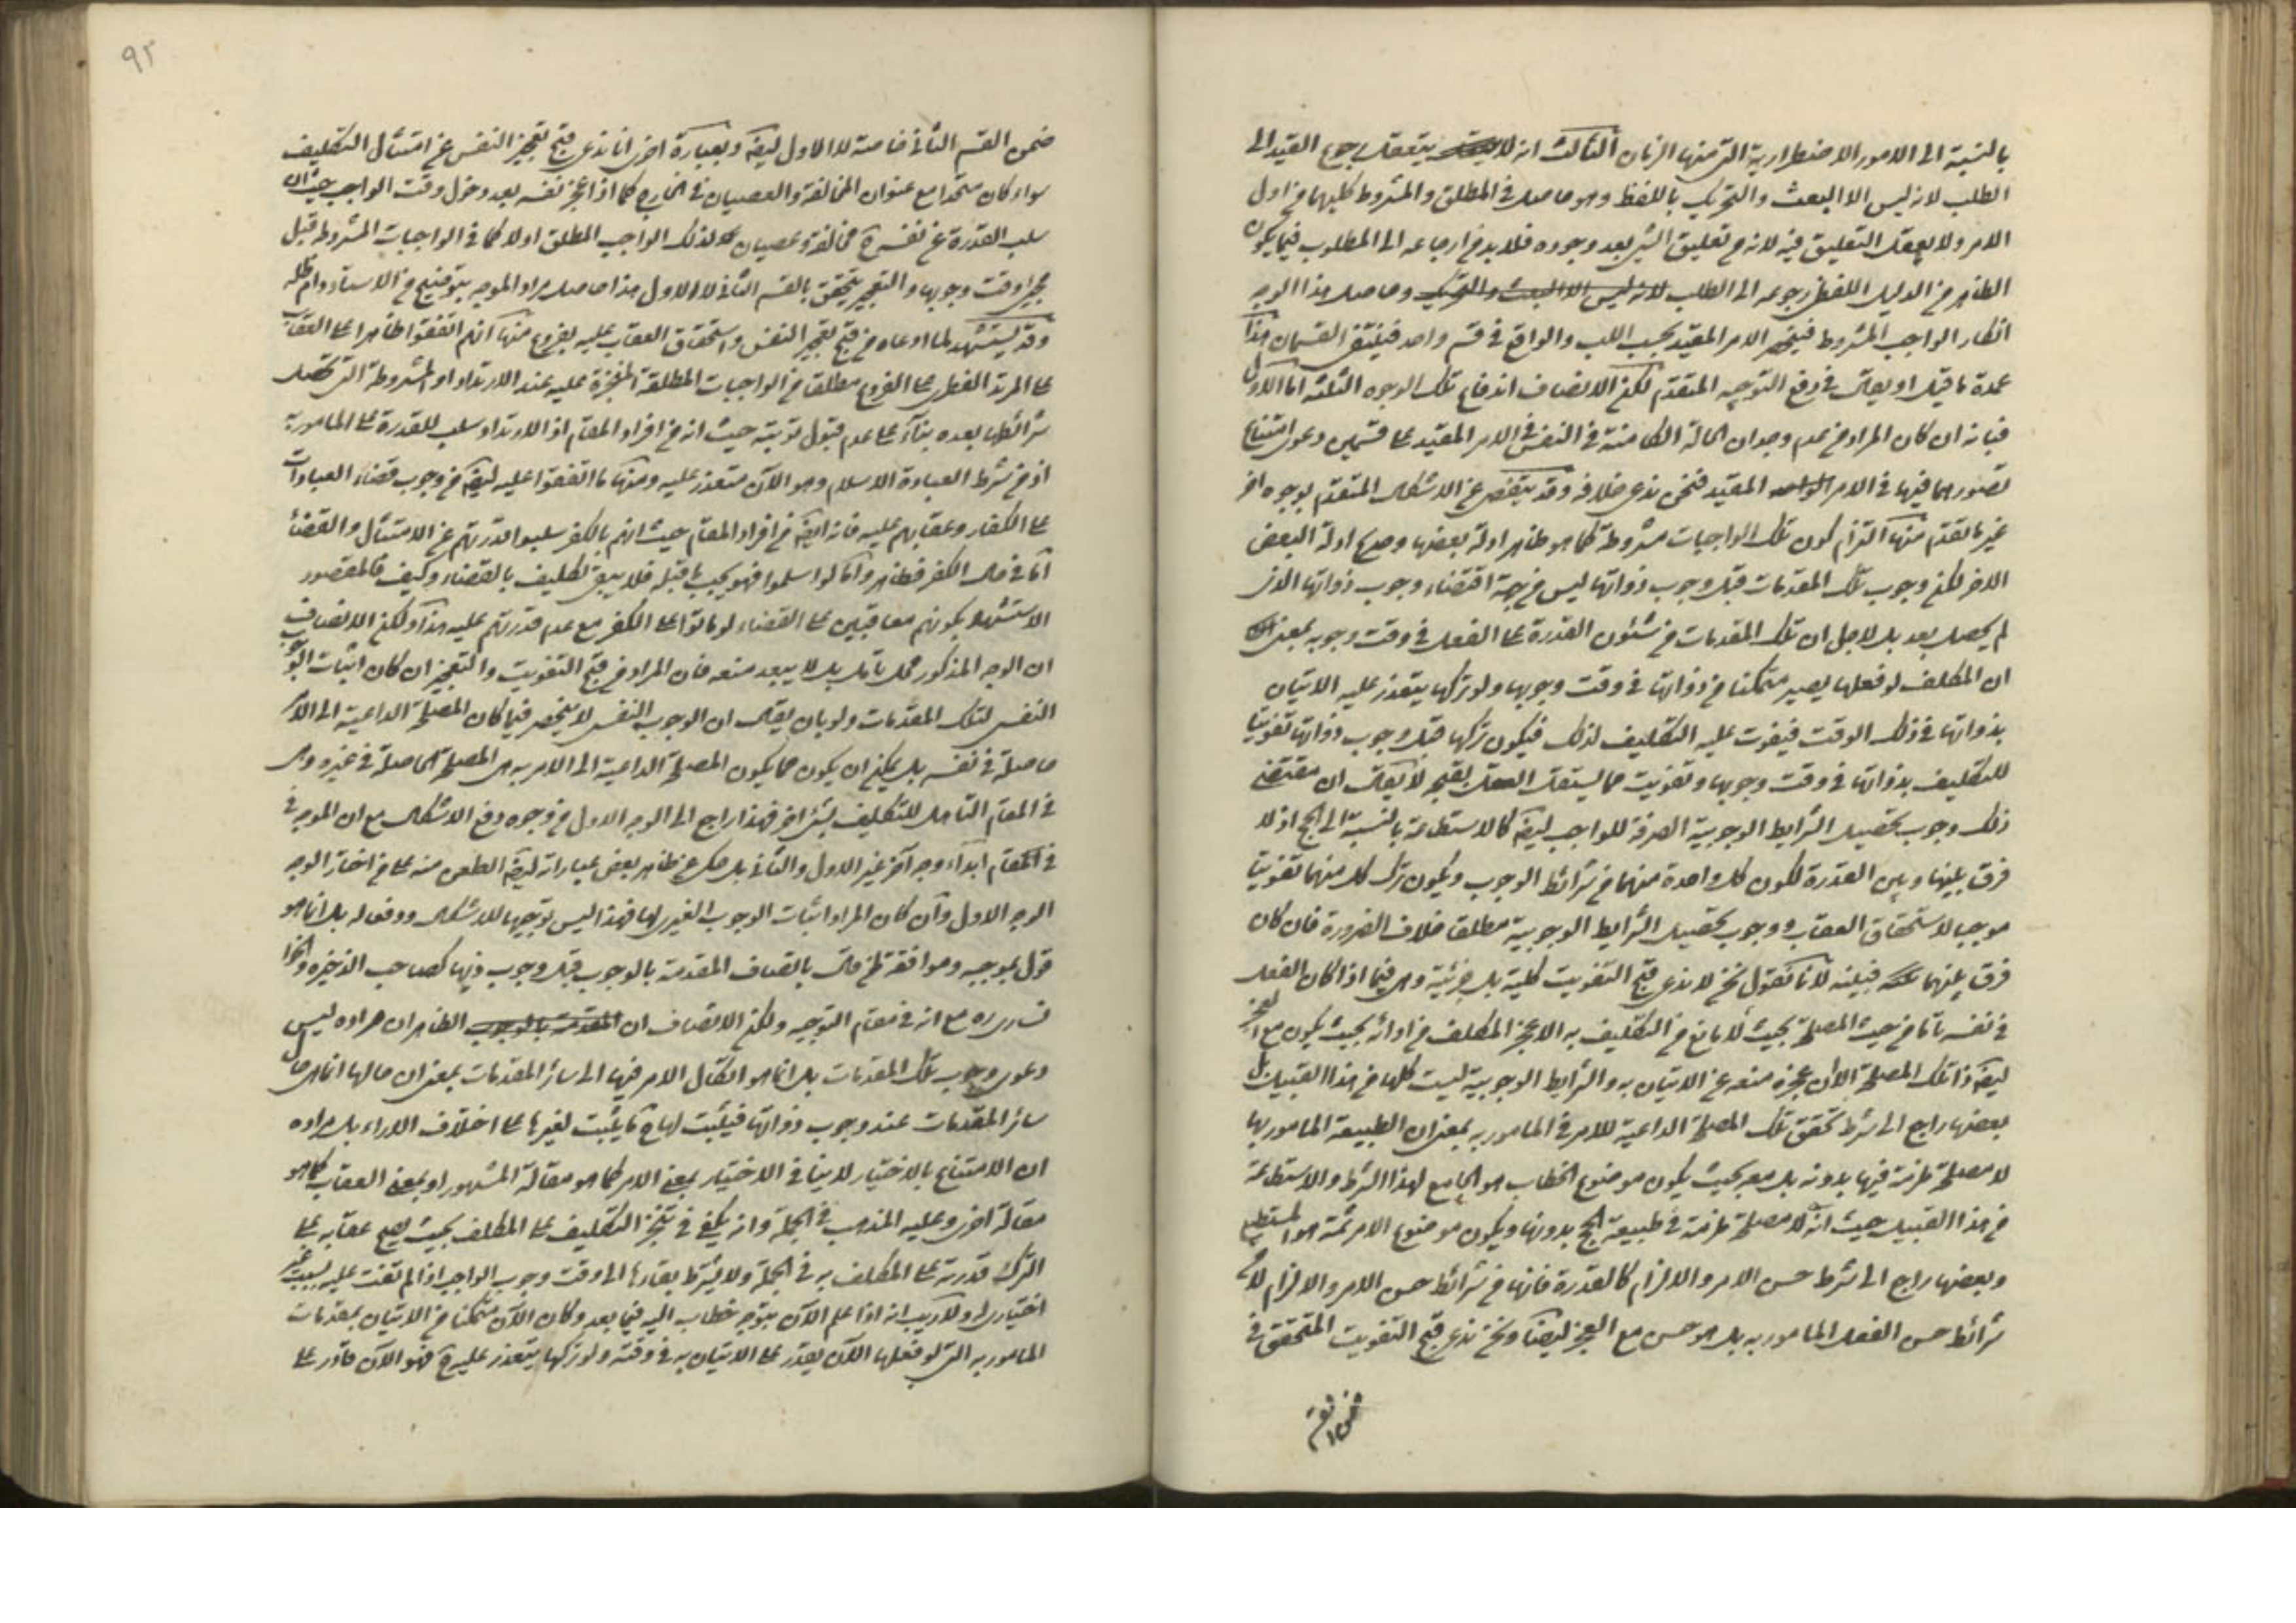 بالنسبة الى الامور الاضطرارية التى منها الزمان الثالث انه لا يتعقل رجوع القيد الى
الطلب لانه ليس الا البعث والتحريك باللفظ وهو حاصل فى المطلق والمشروط كليهما من اول
الامر ولا يعقل التعليق فيه لانه ح تعليق الشئ بعد وجوده فلا بد من ارجاعه الى المطلوب فيما يكون
الظاهر من الدليل اللفظى رجوعه الى الطلب وحاصل هذا الوجه
انكار الواجب المشروط فينحصر الامر المقيد بحسب اللب والواقع فى قسم واحد فينتفى القسمان هذا
عمدة ما قيل او يقال فى دفع التوجيه المتقدم لكن الانصاف اندفاع تلك الوجوه الثلثة اما الاول
فبانه ان كان المراد من عدم وجدان الحالة الكامنة فى النفس فى الامر المقيد على قسمين دعوى امتناع
تصورهما فيها فى الامر المقيد فنحن ندعى خلافه وقد يتفصى عن الاشكال المتقدم بوجوه اخر
غير ما تقدم منها التزام كون تلك الواجبات مشروطة كما هو ظاهر ادلة بعضها وصريح ادلة البعض
الاخر لكن وجوب تلك المقدمات قبل وجوب ذواتها ليس من جهة اقتضاء وجوب ذواتها الذى
لم يحصل بعد بل لاجل ان تلك المقدمات من شئون القدرة على الفعل فى وقت وجوبه بمعنى
ان المكلف لو فعلها يصير متمكنا من ذواتها فى وقت وجوبها ولو تركها يتعذر عليه الاتيان
بذواتها فى ذلك الوقت فيفوت عليه التكليف لذلك فيكون تركها قبل وجوب ذواتها تفويتا
للتكليف بذواتها فى وقت وجوبها وتفويت مما يستقل العقل بقبحه لا يقال ان مقتضى
ذلك وجوب تحصيل الشرايط الوجوبية الصرفة للواجب ايضا كالاستطاعة بالنسبة الى الحج اذ لا
فرق بينها وبين القدرة لكون كل واحدة منهما من شرائط الوجوب ويكون ترك كل منهما تفويتا
موجبا لاستحقاق العقاب ووجوب تحصيل الشرايط الوجوبية مطلقا خلاف الضرورة فان كان
فرق بينهما فبينه لانا نقول نحن لا ندعى قبح التفويت كلية بل جزئية وهى فيما اذا كان الفعل
فى نفسه تاما من حيث المصلحة بحيث لا مانع من التكليف به الا عجز المكلف من ادائه بحيث يكون مع العجز
ايضا ذا تلك المصلحة الا ان عجزه منعه عن الاتيان به والشرايط الوجوبية ليست كلها من هذا القبيل بل
بعضها راجع الى شرط تحقق تلك المصلحة الداعية للامر فى المامور به بمعنى ان الطبيعة المامور بها
لا مصلحة ملزمة فيها بدونه بل معه بحيث يكون موضوع الخطاب هو الجامع لهذا الشرط والاستطاعة
من هذا القبيل حيث انه لا مصلحة ملزمة فى طبيعة الحج بدونها ويكون موضوع الامر ثمة هو المستطيع
وبعضها راجع الى شرط حسن الامر والالزام كالقدرة فانها من شرائط حسن الامر والالزام لا من
شرائط حسن الفعل المامور به بل هو حسن مع العجز ايضا ونحن ندعى قبح التفويت المتحقق فى
ضمن القسم
٩٢
ضمن القسم الثانى خاصة لا الاول ايضا وبعبارة اخرى انا ندعى قبح تعجيز النفس عن امتثال التكليف
سواء كان متحدا مع عنوان المخالفة والعصيان فى الخارج كما اذا عجز نفسه بعد دخول وقت الواجب حيث ان
سلب القدرة عن نفسه ح مخالفة وعصيان لذلك الواجب المطلق اولا كما فى الواجبات المشروطة قبل
مجئ وقت وجوبها والتعجيز يتحقق بالقسم الثانى لا الاول هذا حاصل مراد الموجه بتوضيح من الاستاد دام ظله
وقد يستشهد لما ادعاه من قبح تعجيز النفس واستحقاق العقاب عليه بفروع منها انهم اتفقوا ظاهرا على العقاب
على المرتد الفطرى على الفروع مطلقا من الواجبات المطلقة المنجزة عليه عند الارتداد او المشروطة التى تحصل
شرائطها بعده بناء على عدم قبول توبته حيث انه من افراد المقام اذ الارتداد سلب للقدرة على المامور به
اذ من شرط العبادة الاسلام وهو الآن متعذر عليه ومنها ما اتفقوا عليه ايضا من وجوب قضاء العبادات
على الكفار وعقابهم عليه فانه ايضا من افراد المقام حيث انهم بالكفر سلبوا قدرتهم عن الامتثال والقضاء
اما فى حال الكفر فظاهر واما لو اسلموا فهو يجب ما قبله فلا يبقى تكليف بالقضاء وكيف فالمقصود
الاستشهاد بكونهم معاقبين على القضاء لو ماتوا على الكفر مع عدم قدرتهم عليه هذا ولكن الانصاف
ان الوجه المذكور محل تامل بل لا يبعد منعه فان المراد من قبح التفويت والتعجيز ان كان اثبات الوجوب
النفسى لتلك المقدمات ولو بان يقال ان الوجوب النفسى لا ينحصر فيما كان المصلحة الداعية الى الامر
حاصلة فى نفسه بل يمكن ان يكون مما يكون المصلحة الداعية الى الامر به هى المصلحة الحاصلة فى غيره وهى
فى المقام التاهل للتكليف بشئ اخر فهذا راجع الى الوجه الاول من وجوه دفع الاشكال مع ان الموجه فى
فى المقام ابداء وجه آخر غير الاول والثانى بل حكى عن ظاهر بعض عباراته ايضا الطعن منه على من اختار الوجه
الوجه الاول وان كان المراد اثبات الوجوب الغيرى لها فهذا ليس توجيها للاشكال ودفعا له بل انما هو
قول بموجبه وموافقة لمن قال باتصاف المقدمة بالوجوب قبل وجوب ذيها كصاحب الذخيرة
مع انه فى مقام التوجيه ولكن الانصاف ان الظاهر ان مراده ليس
دعوى وجوب تلك المقدمات بل انما هو اتكال الامر فيها الى سائر المقدمات بمعنى ان حالها انما هى حال
سائر المقدمات عند وجوب ذواتها فيثبت لها ح ما يثبت لغيرها على اختلاف الاراء بل مراده
ان الامتناع بالاختيار لا ينافى الاختيار بمعنى الامر كما هو مقالة المشهور او بمعنى العقاب كما هو
مقالة اخرى وعليه المذهب فى الجملة وانه يكفى فى تنجز التكليف على المكلف بحيث يصح عقابه على
الترك قدرته على المكلف به فى الجملة ولا يشترط بقاءها الى وقت وجوب الواجب اذا لم تفت عليه بسبب غير
اختيارى ولا ريب انه اذا علم الآن بتوجه خطاب اليه فيما بعد وكان الآن متمكنا من الاتيان بمقدمات
المامور به التى لو فعلها الآن يقدر على الاتيان به فى وقته ولو تركها يتعذر عليه ح فهو الآن قادر على